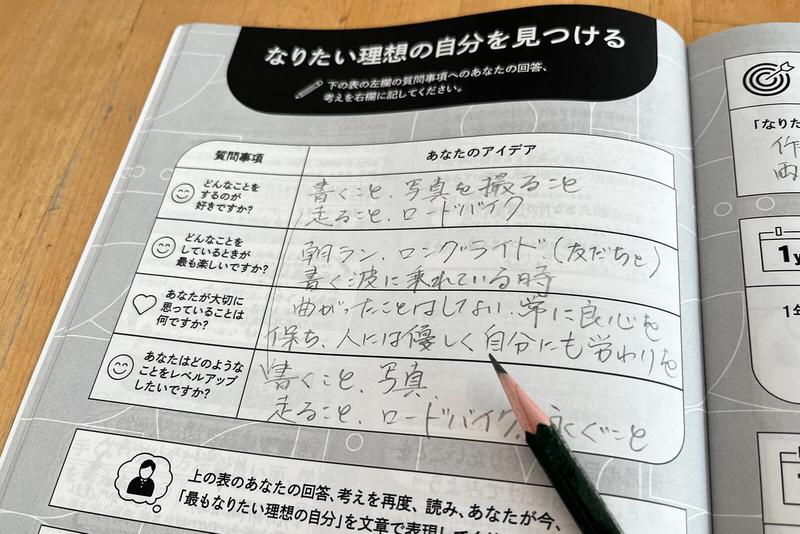 なりたい理想の自分を見つける
下の表の左欄の質問事項へのあなたの回答、
考えを右欄に記してください。
質問事項
あなたのアイデア
どんなことを
するのが
好きですか?
書くこと、写真を撮ること
走ること、ロードバイク
どんなことを
しているときが
最も楽しいですか?
朝ラン、ロングライド(友だちと)
書く波に乗れている時
あなたが大切に
思っていることは
何ですか?
曲がったことはしない、常に良心を
保ち、人には優しく自分にも労わりを
あなたはどのような
ことをレベルアップ
したいですか?
書くこと、写真、
走ること、ロードバイク、泳ぐこと
上の表のあなたの回答、考えを再度、読み、あなたが今、
「最もなりたい理想の自分」を文章で表現して
「なりた
作
1y
1年